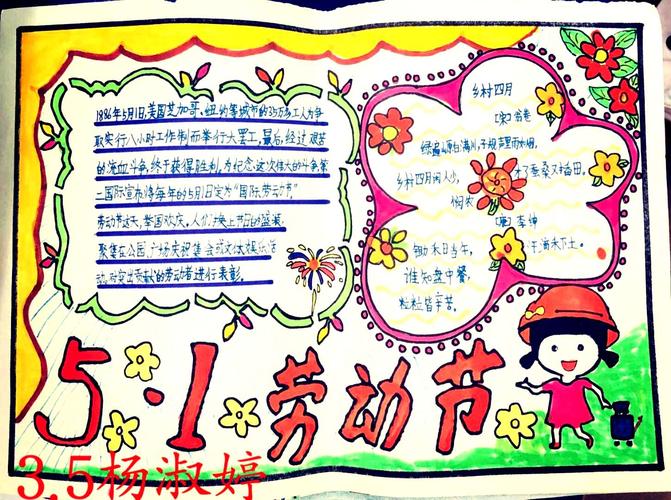 1886年5月1日,美国芝加哥、纽约等城市的35万多工人为争
取实行八小时工作制而举行大罢工,最后,经过艰苦
的流血斗争,终于获得胜利。为纪念这次伟大的斗争,第
二国际宣布将每年的5月1日定为“国际劳动节”
劳动节这天,举国欢庆。人们换上节日的盛装,
聚集在公园、广场庆祝集会或文体娱乐活
动,对突出贡献的劳动者进行表彰。
乡村四月
[宋]翁卷
绿遍山原白满川,子规声里雨如烟。
乡村四月闲人少,才了蚕桑又插田。
悯农
[唐]李绅
锄禾日当午,汗滴禾下土。
谁知盘中餐,
粒粒皆辛苦。
5·1劳动节
3.5杨淑婷